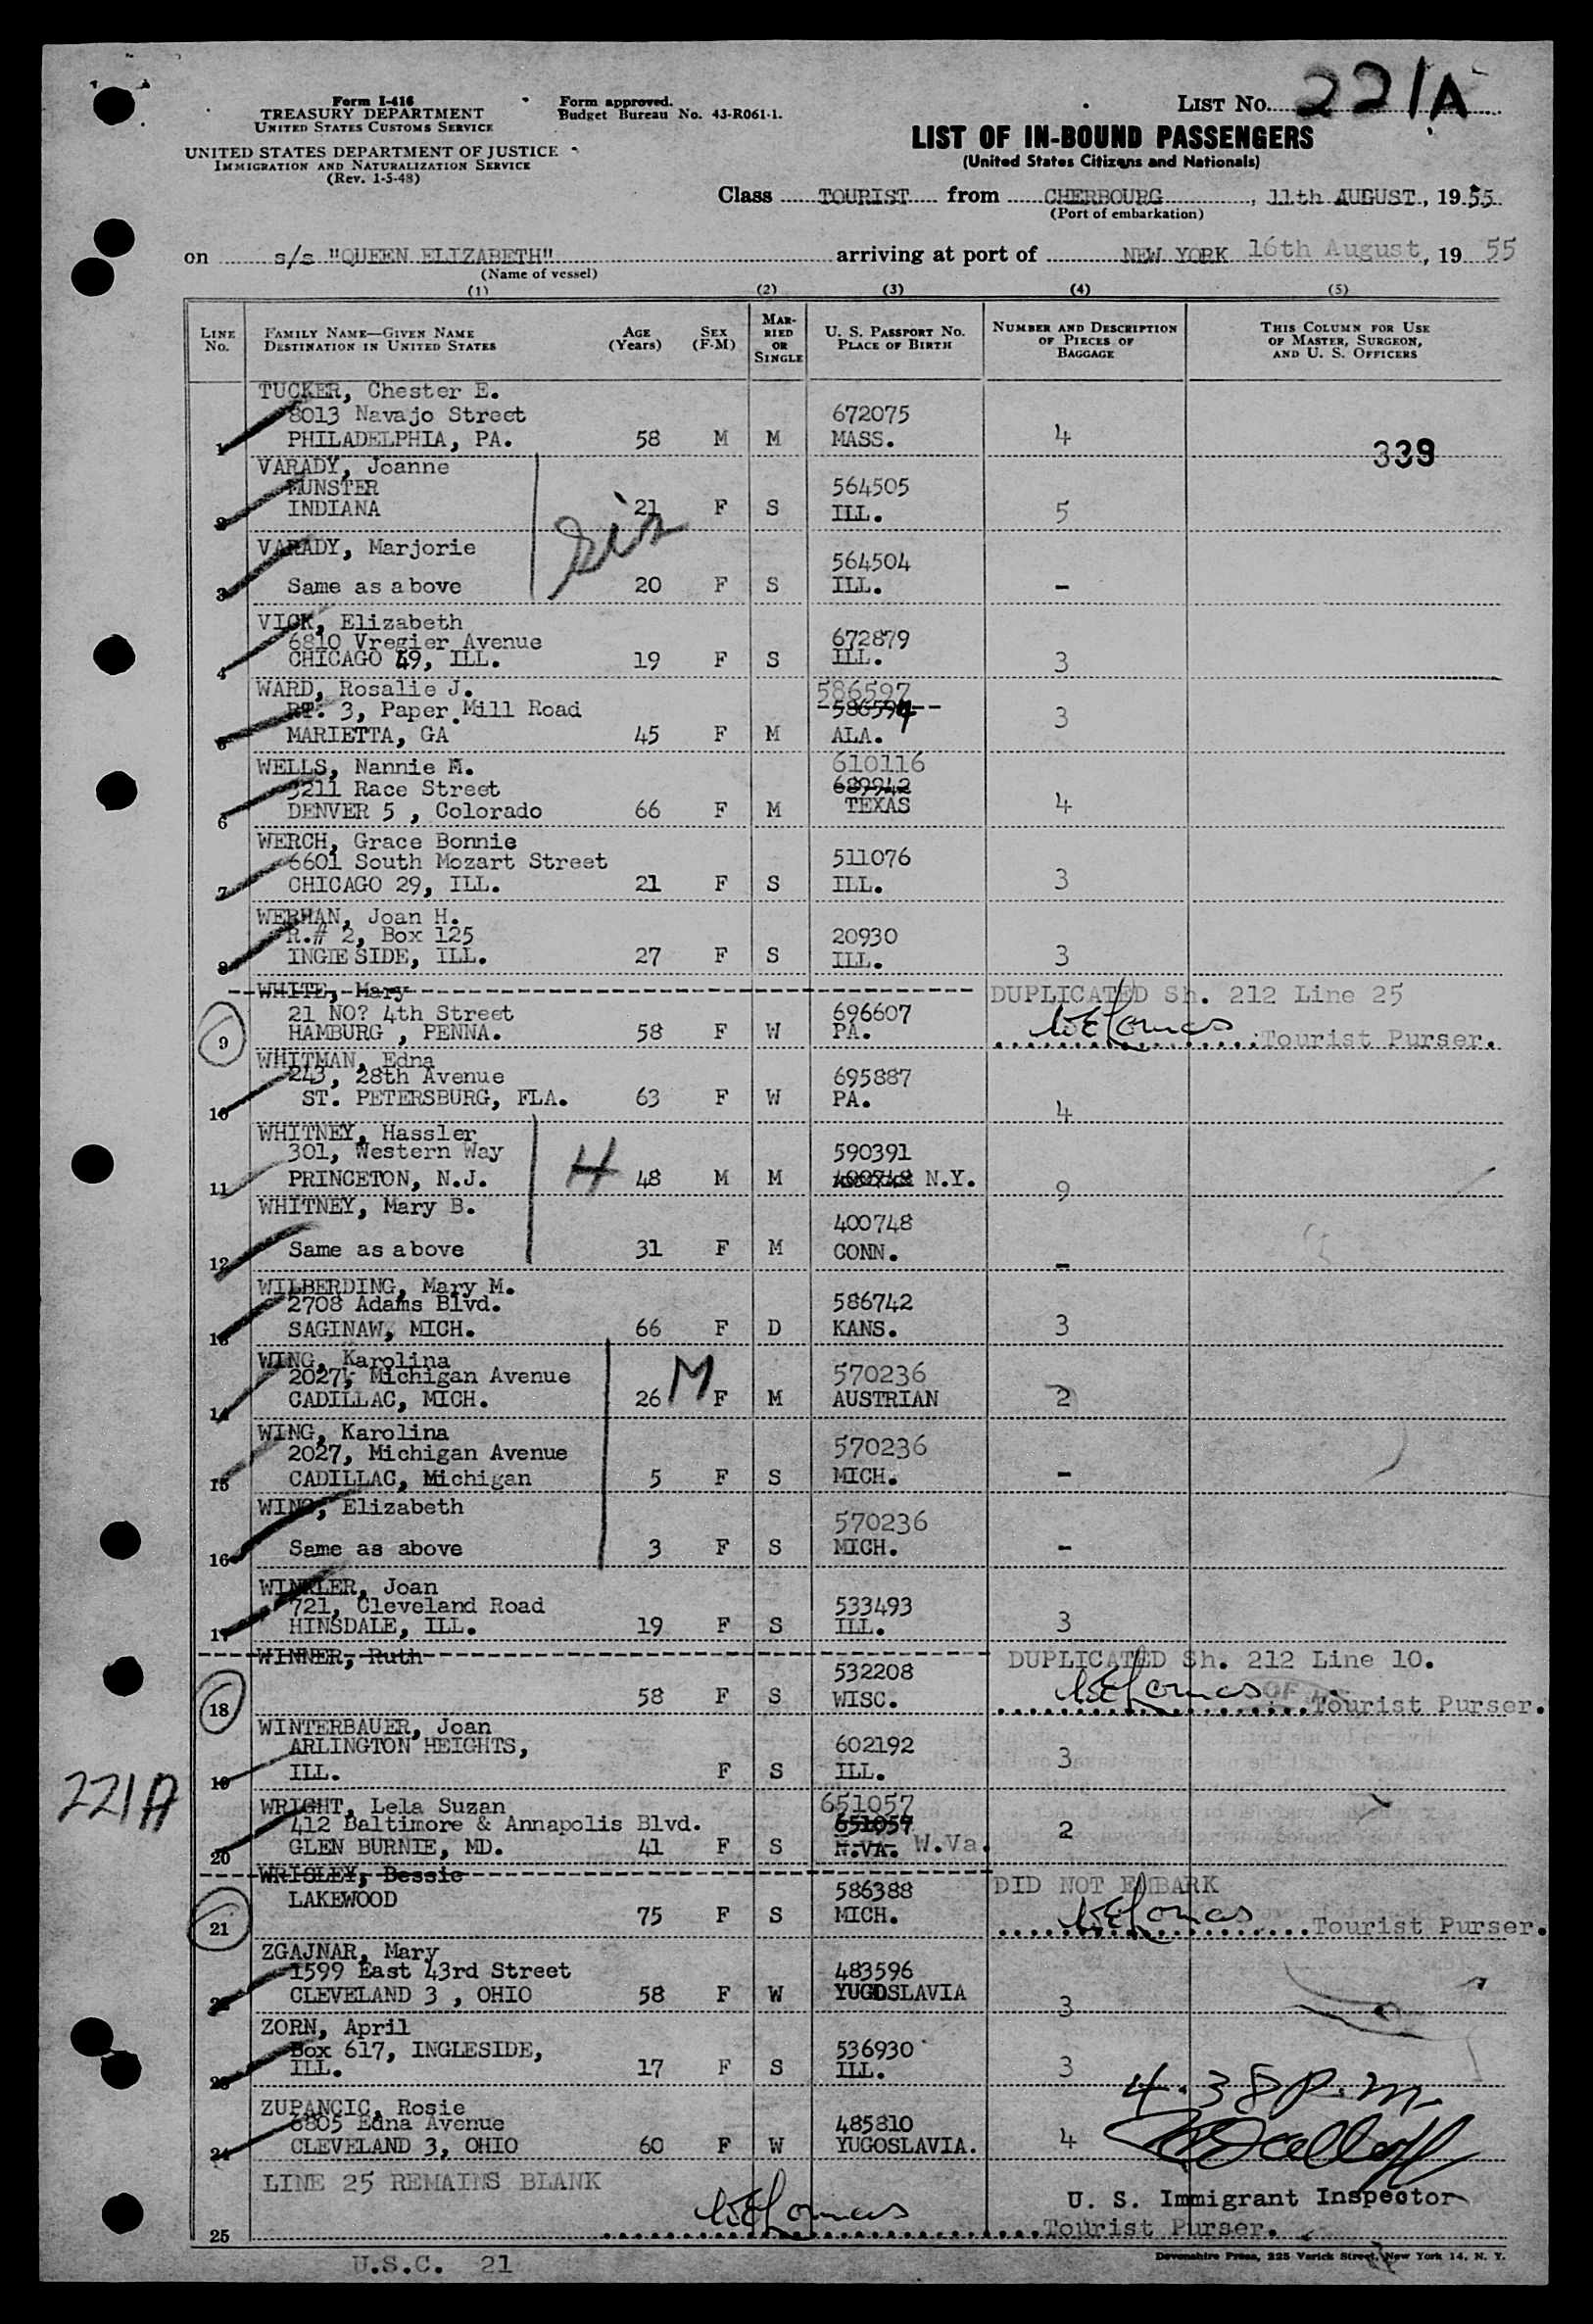 Form I-416
TREASURY DEPARTMENT
UNITED STATES CUSTOMS SERVICE
UNITED STATES DEPARTMENT OF JUSTICE
IMMIGRATION AND NATURALIZATION SERVICE
(Rev. 1-5-48)
Form approved.
Budget Bureau No. 43-R061-1.
LIST NO. 221A
LIST OF IN-BOUND PASSENGERS
(United States Citizens and Nationals)
Class TOURIST from CHERBOURG, 11th AUGUST, 1955
(Port of embarkation)
on s/s "QUEEN ELIZABETH" arriving at port of NEW YORK 16th August, 19 55
(Name of vessel)
(1) (2) (3) (4) (5)
LINE NO. FAMILY NAME—GIVEN NAME DESTINATION IN UNITED STATES AGE (Years) SEX (F-M) MARRIED OR SINGLE U. S. PASSPORT NO. PLACE OF BIRTH NUMBER AND DESCRIPTION OF PIECES OF BAGGAGE THIS COLUMN FOR USE OF MASTER, SURGEON, AND U. S. OFFICERS
TUCKER, Chester E.
8013 Navajo Street 672075
1 PHILADELPHIA, PA. 58 M M MASS. 4 339
VARADY, Joanne
MUNSTER 564505
2 INDIANA 21 F S ILL. 5
sis
VARADY, Marjorie
564504
3 Same as above 20 F S ILL. -
VICK, Elizabeth
6810 Vregier Avenue 672879
4 CHICAGO 49, ILL. 19 F S ILL. 3
WARD, Rosalie J. 586597
RT. 3, Paper Mill Road 586594 3
5 MARIETTA, GA 45 F M ALA.
WELLS, Nannie M. 610116
3211 Race Street 689942
6 DENVER 5 , Colorado 66 F M TEXAS 4
WERCH, Grace Bonnie
6601 South Mozart Street 511076
7 CHICAGO 29, ILL. 21 F S ILL. 3
WERHAN, Joan H.
R.# 2, Box 125 20930
8 INGLESIDE, ILL. 27 F S ILL. 3
WHITE, Mary DUPLICATED Sh. 212 Line 25
21 NO? 4th Street 696607
9 HAMBURG , PENNA. 58 F W PA. Tourist Purser.
WHITMAN, Edna
243, 28th Avenue 695887
10 ST. PETERSBURG, FLA. 63 F W PA. 4
WHITNEY, Hassler
301, Western Way 590391
11 PRINCETON, N.J. H 48 M M 400748 N.Y. 9
WHITNEY, Mary B.
400748
12 Same as above 31 F M CONN. -
WILBERDING, Mary M.
2708 Adams Blvd. 586742
13 SAGINAW, MICH. 66 F D KANS. 3
WING, Karolina
2027, Michigan Avenue M 570236
14 CADILLAC, MICH. 26 F M AUSTRIAN 2
WING, Karolina
2027, Michigan Avenue 570236
15 CADILLAC, Michigan 5 F S MICH. -
WING, Elizabeth
570236
16 Same as above 3 F S MICH. -
WINKLER, Joan
721, Cleveland Road 533493
17 HINSDALE, ILL. 19 F S ILL. 3
WINNER, Ruth DUPLICATED Sh. 212 Line 10.
532208
18 58 F S WISC. Tourist Purser.
WINTERBAUER, Joan
ARLINGTON HEIGHTS, 602192
19 ILL. F S ILL. 3
221A
WRIGHT, Lela Suzan 651057
412 Baltimore & Annapolis Blvd. 651057
20 GLEN BURNIE, MD. 41 F S N.VA. W.Va. 2
WRISLEY, Bessie DID NOT EMBARK
LAKEWOOD 586388
21 75 F S MICH. Tourist Purser.
ZGAJNAR, Mary
1599 East 43rd Street 483596
22 CLEVELAND 3 , OHIO 58 F W YUGOSLAVIA 3
ZORN, April
Box 617, INGLESIDE, 536930
23 ILL. 17 F S ILL. 3
4.38 P.m.
ZUPANCIC, Rosie
6805 Edna Avenue 485810
24 CLEVELAND 3, OHIO 60 F W YUGOSLAVIA. 4
LINE 25 REMAINS BLANK
U. S. Immigrant Inspector
25 Tourist Purser.
U.S.C. 21
Devonshire Press, 225 Varick Street, New York 14, N. Y.